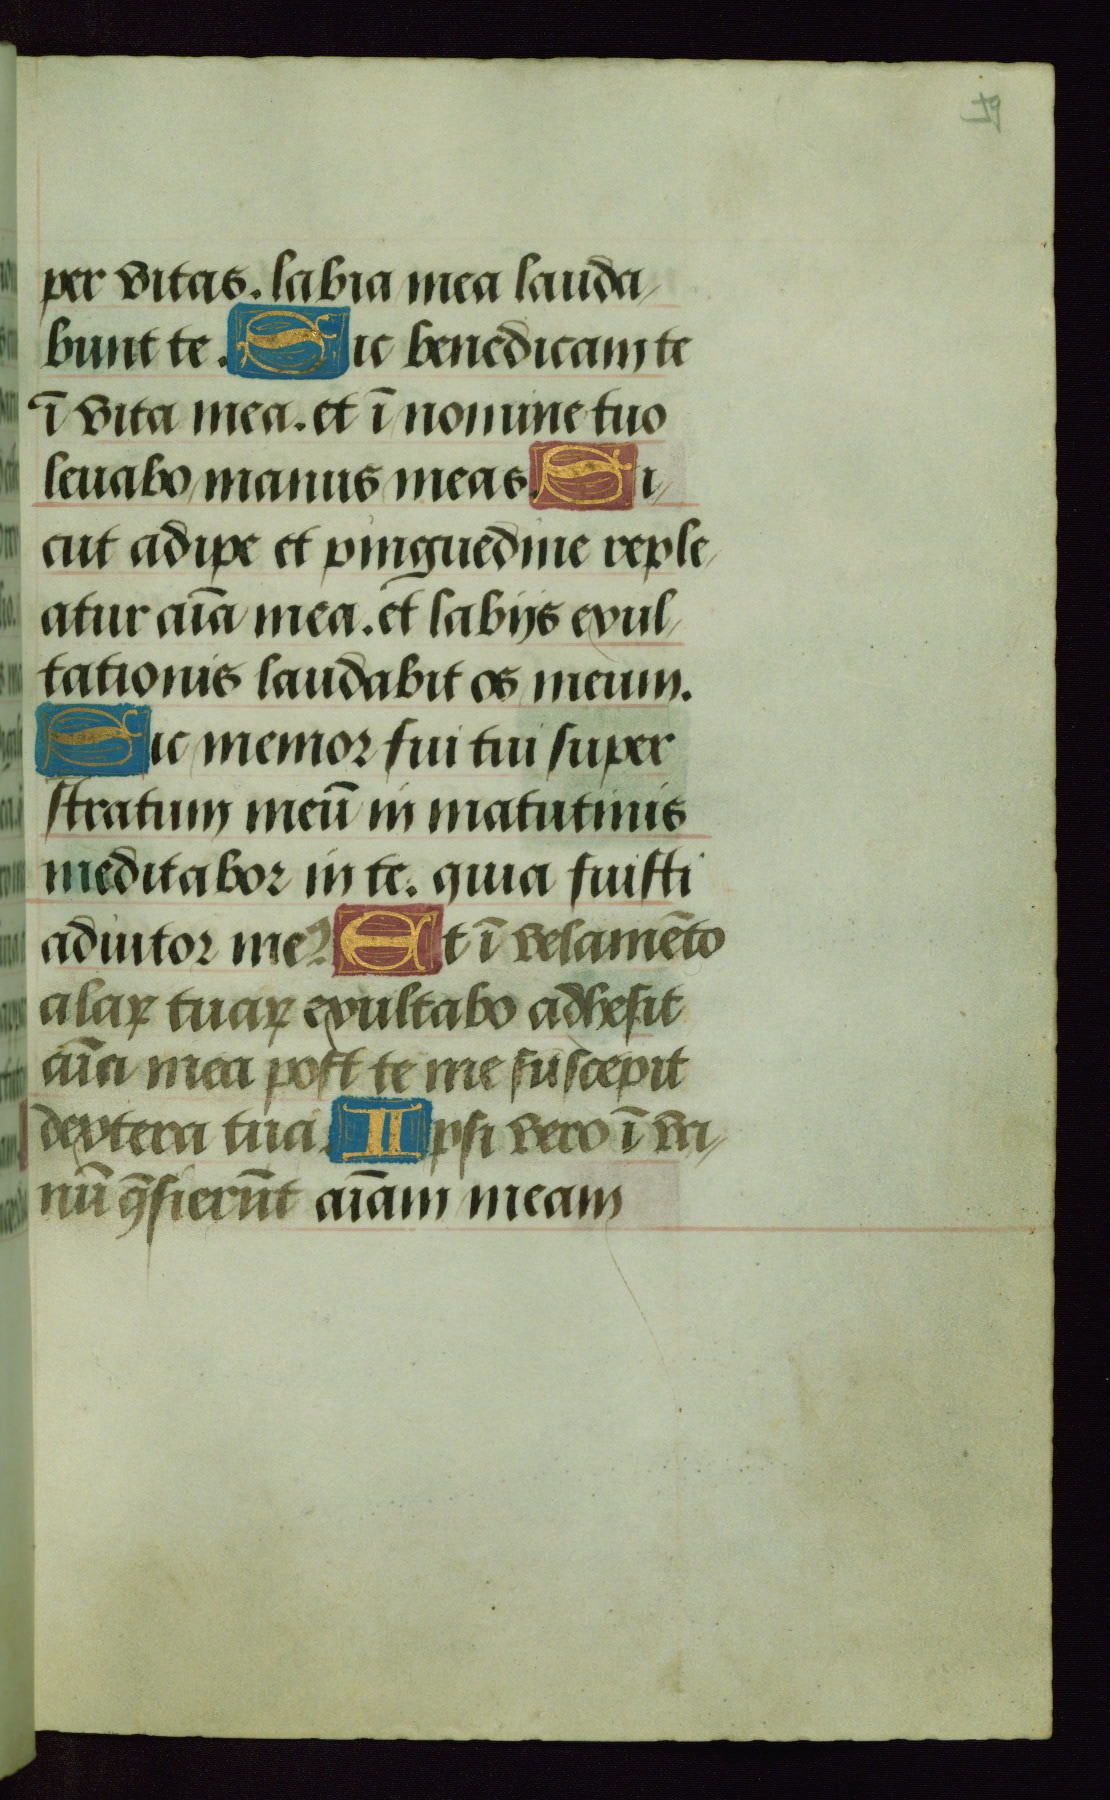 per vitas. labia mea lauda
bunt te. Sic benedicam te
ī vita mea. et ī nomine tuo
levabo manus meas. Si
cut adipe et pinguedine reple
atur aīa mea. et labijs exul
tationis laudabit os meum.
Sic memor fui tui super
stratum meū in matutinis
meditabor in te. quia fuisti
adiutor me? Et ī velamēto
alaꝝ tuaꝝ exultabo adhesit
aīa mea post te me suscepit
dextera tua. Ipsi vero ī va
nū q̄sierūt aīam meam